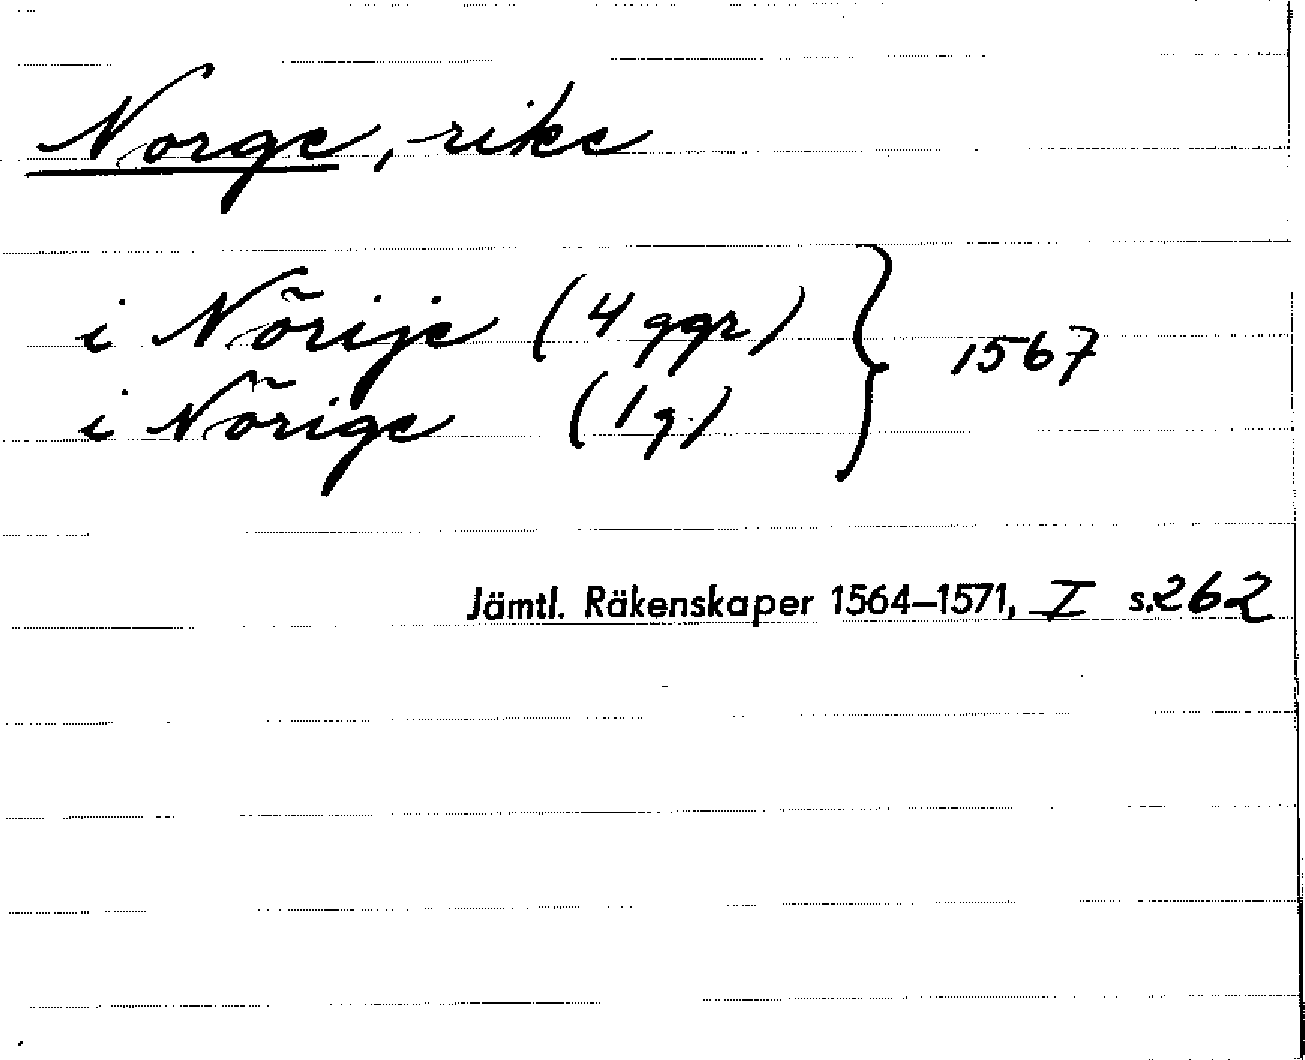 Norge, rike
i Nõrije (4 ggr)
i Nõrige (1 g.) } 1567
Jämtl. Räkenskaper 1564–1571, I s. 262